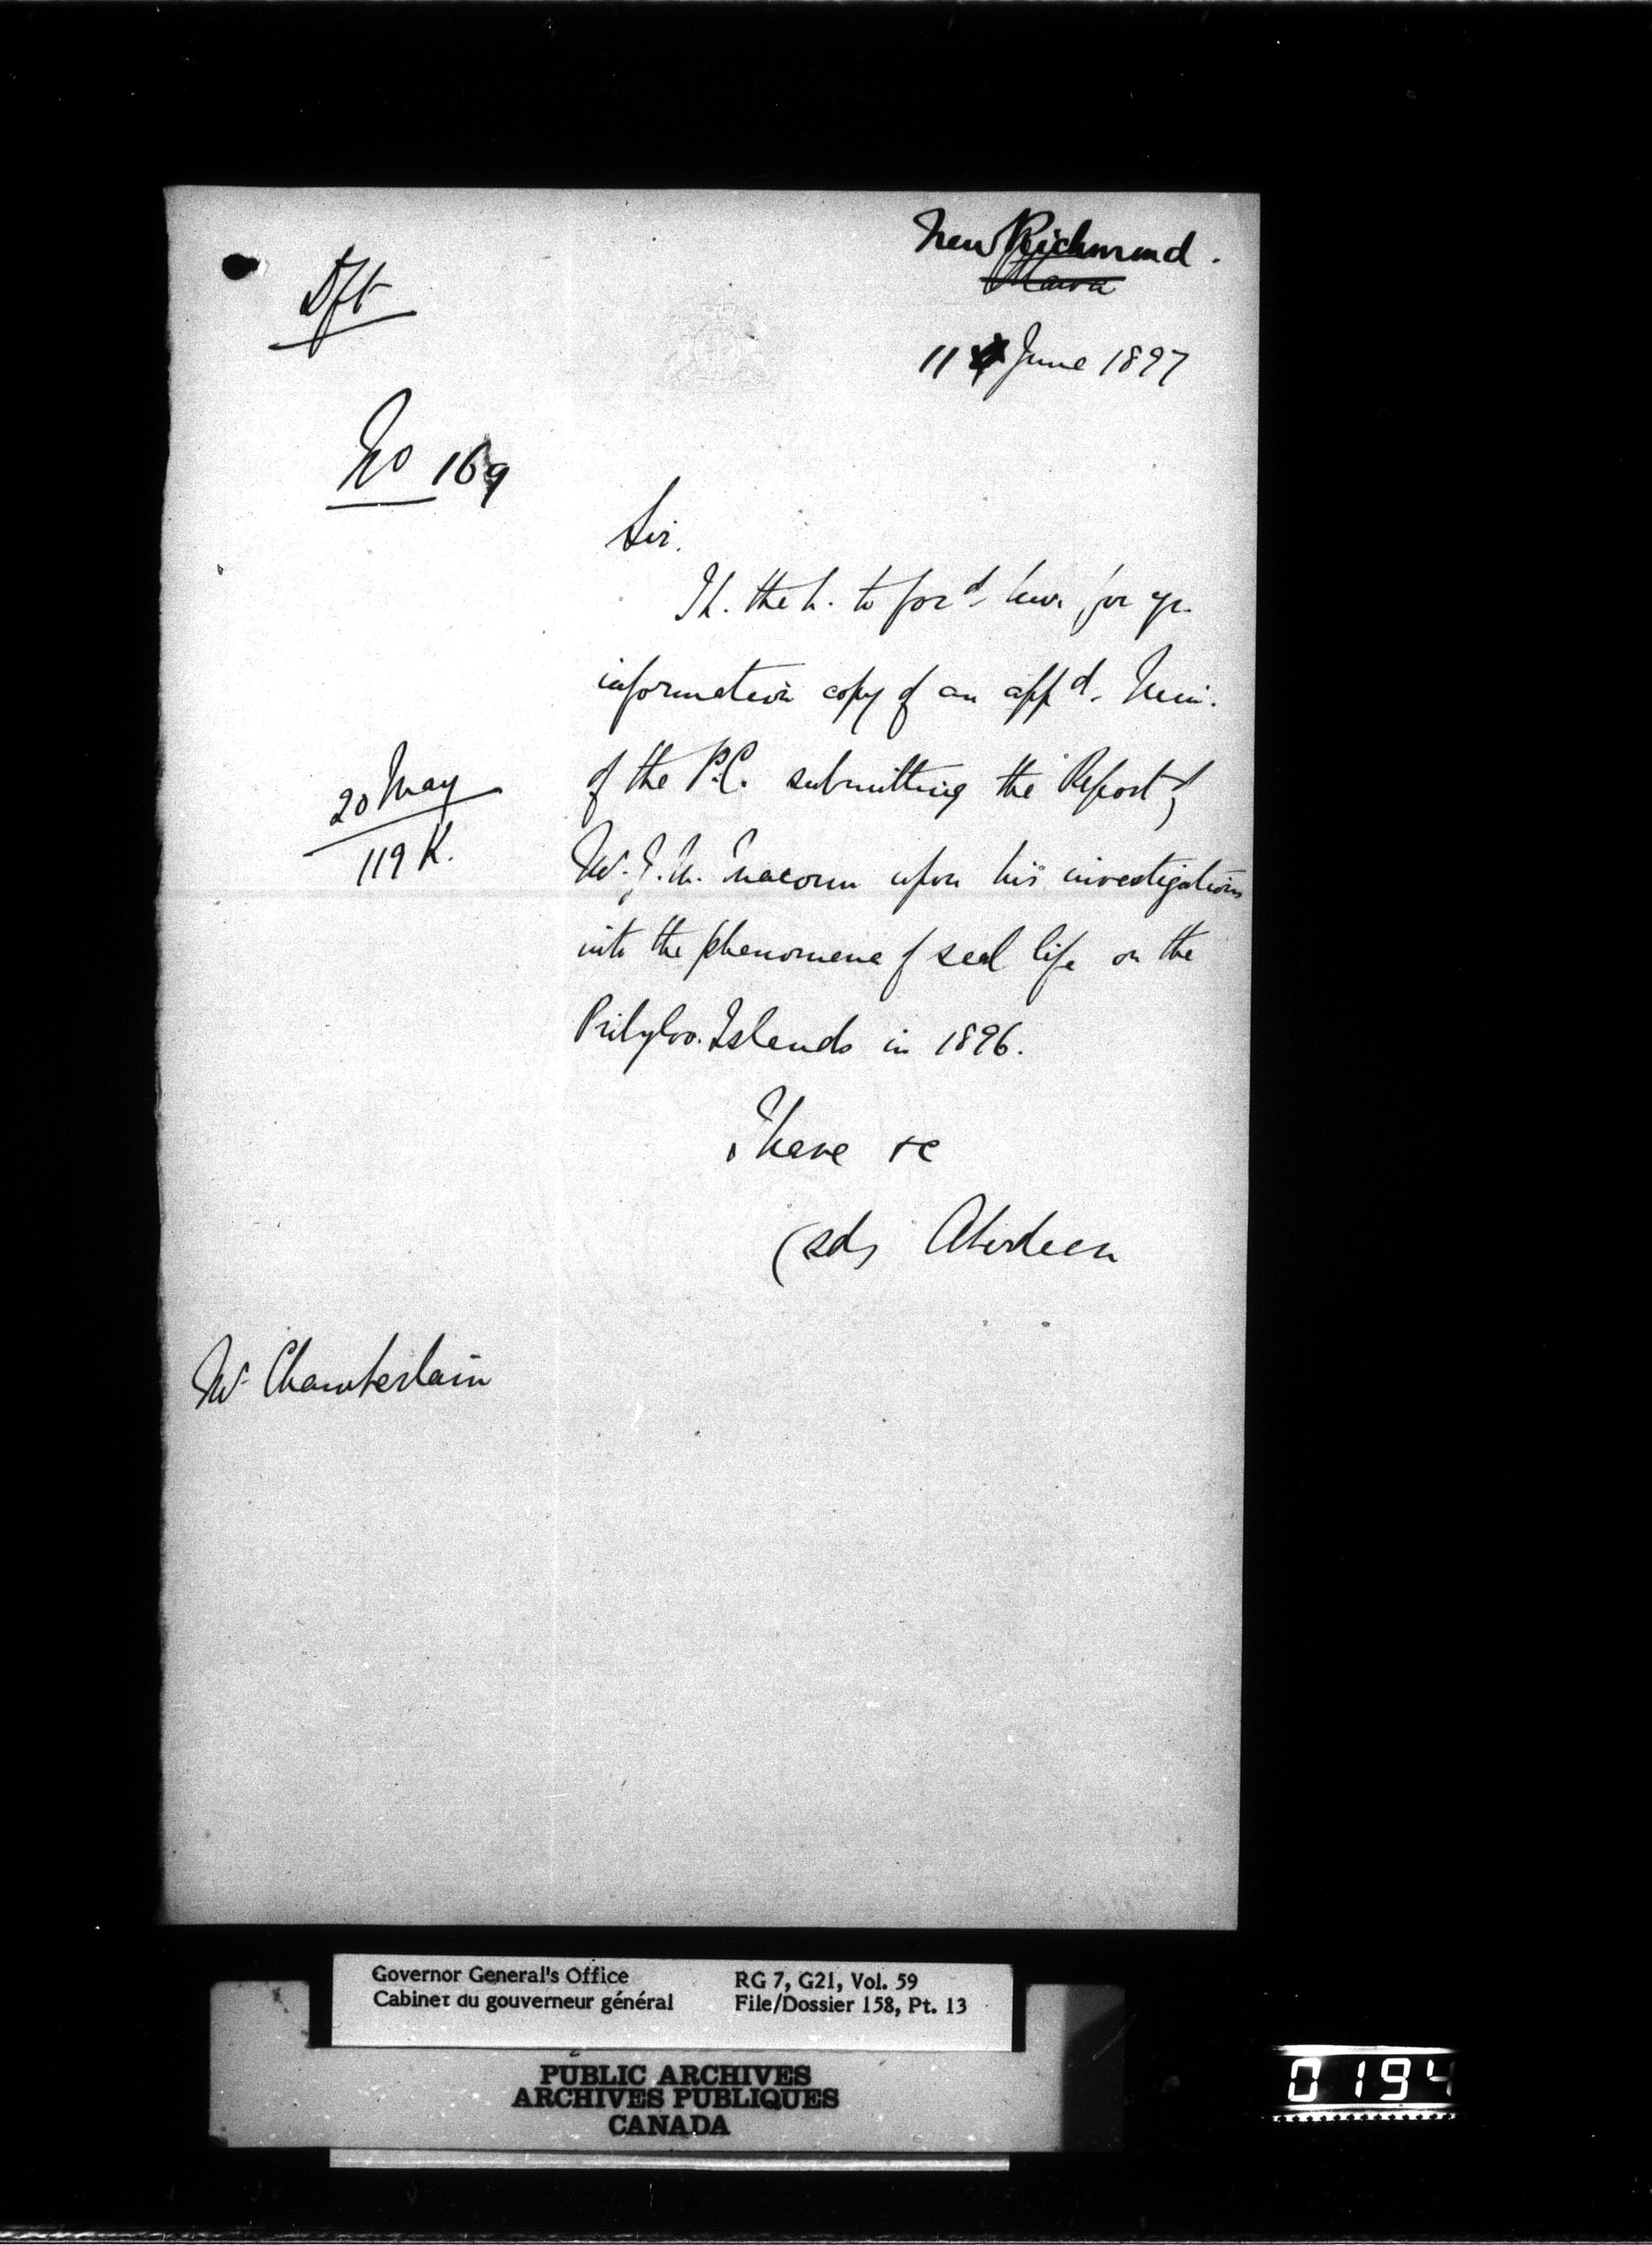 New Richmond.
Ottawa
Dft
11 June 1897
No 169
Sir.
I h. the h. to ford. hew. for yr.
information copy of an appd. Min.
of the P.C. submitting the Report of
20 May
119 K.
Mr. J. M. Macoun upon his investigations
into the phenomena of seal life on the
Pribylov. Islands in 1896.
I have &c
(sd) Aberdeen
Mr Chamberlain
Governor General's Office
Cabinet du gouverneur général
RG 7, G21, Vol. 59
File/Dossier 158, Pt. 13
PUBLIC ARCHIVES
ARCHIVES PUBLIQUES
CANADA
0194